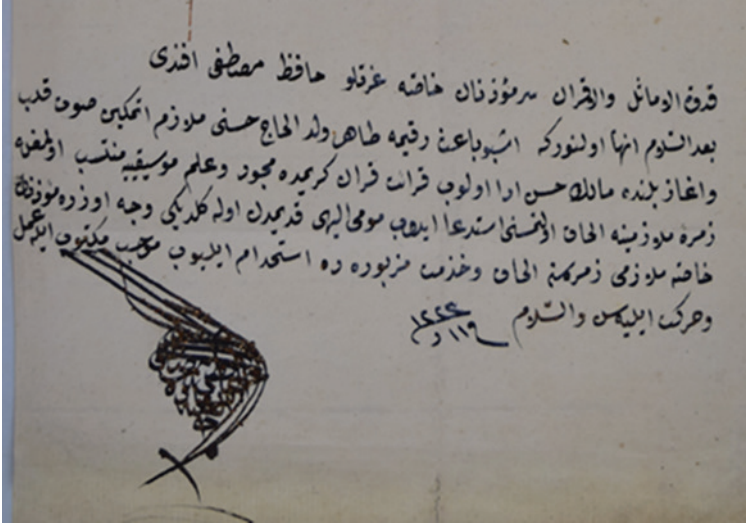 قدوة الاماثل والاقران سرمؤذنان خاصه عزتلو حافظ مصطفى افندى
بعد السلام انها اولنور كه اشبو باعث رقيمه طاهر ولد الحاج حسنى ملازم اتمكين صوت قلب
واغاز بلنده مالك حسن ادا اولوب قرائت قران كريمده مجود وعلم موسيقيه منتسب اولمغله
زمره ملازمينه الحاق اولنمسنى استدعا ايدوب مومى اليهى قديمدن اوله كلديكى وجه اوزره موذنان
خاصه ملازمى زمره‌سنه الحاق وخدمت مزبوره ده استخدام ايليوب موجب مكتوب ايله عمل
وحركت ايليه‌سن والسلام
١٢٢٤